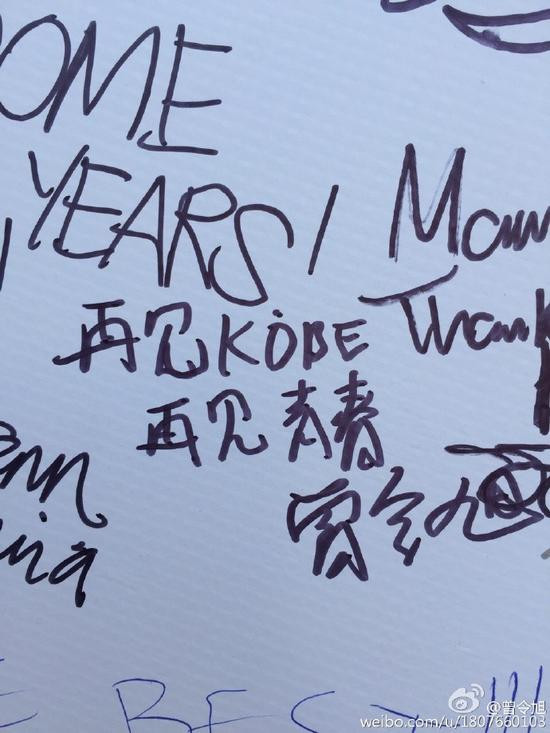 OME
YEARS!
再见KOBE
再见青春
曾令旭
Thank
BEST!!!
@曾令旭
weibo.com/u/1807660103